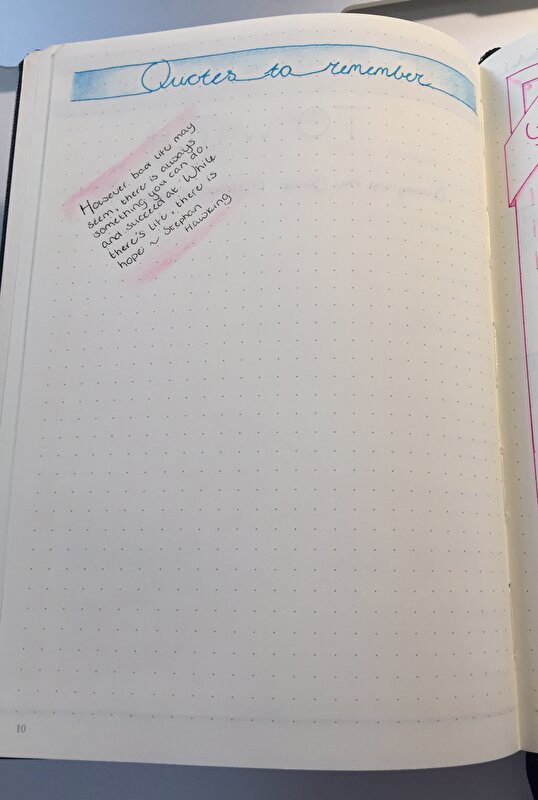 Quotes to remember
However bad life may
seem, there is always
something you can do,
and succeed at. While
there's life, there is
hope ~ Stephan
Hawking
10